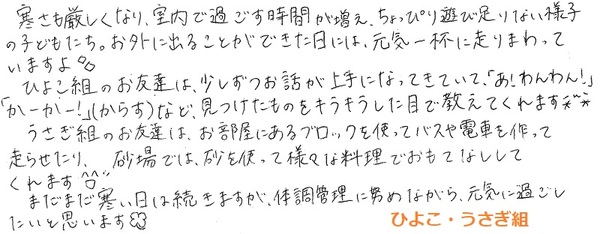 寒さも厳しくなり、室内で過ごす時間が増え、ちょっぴり遊び足りない様子
の子どもたち。お外に出ることができた日には、元気一杯に走りまわって
いますよ
ひよこ組のお友達は、少しずつお話が上手になってきていて、「あ!わんわん!」
「かーかー!」(からす)など、見つけたものをキラキラした目で教えてくれます
うさぎ組のお友達は、お部屋にあるブロックを使ってバスや電車を作って
走らせたり、 砂場では、砂を使って様々な料理でおもてなしして
くれます
まだまだ寒い日は続きますが、体調管理に努めながら、元気に過ごし
たいと思います
ひよこ・うさぎ組